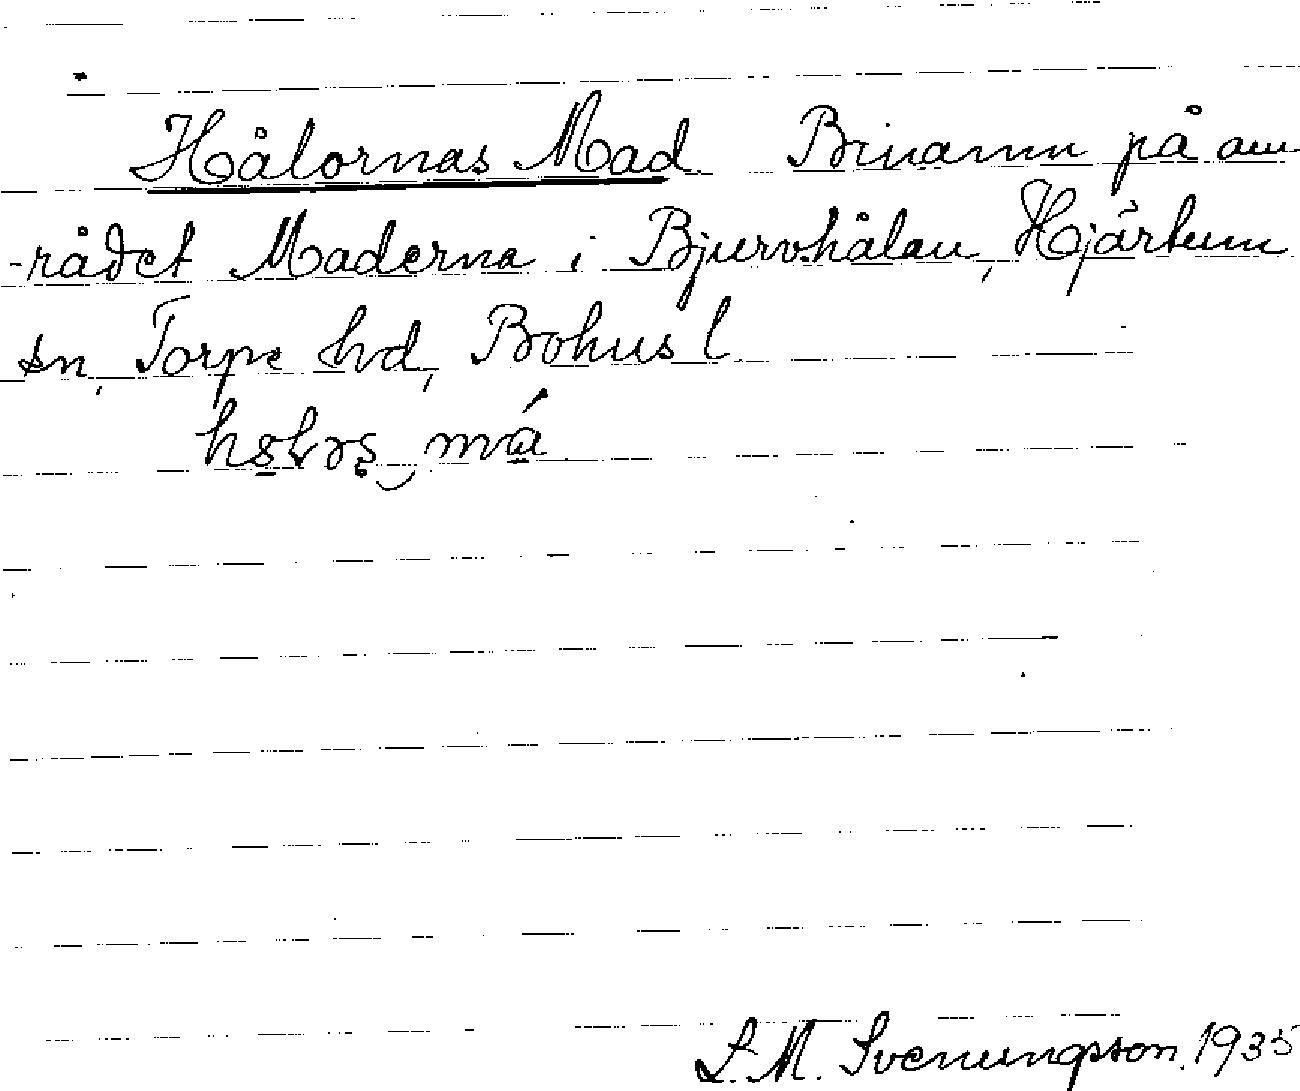 Hålornas Mad Binamn på om
-rådet Maderna i Bjurvhålan, Hjärtum
sn, Torpe hd, Bohus l
L. M. Svenungsson. 1935